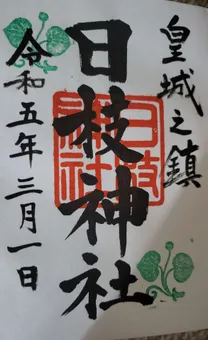 皇城之鎮
日枝神社
日枝神社
令和五年三月一日